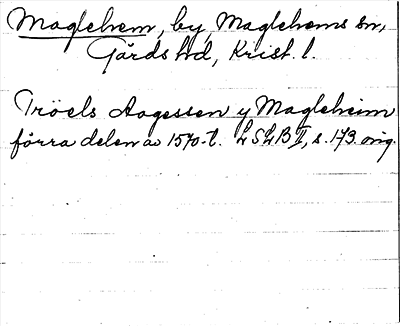 Maglehem, by, Maglehems sn,
Gärds hd, Krist. l.
Tröels Aagessen y Magleheim
förra delen av 1570-t. LSLB II, s. 173. orig.